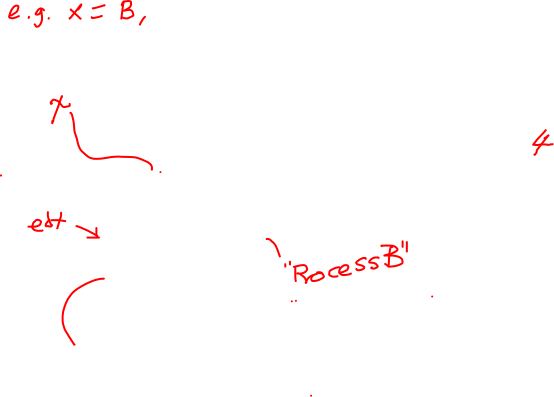 e.g. x = B,
x
4
edt
"ProcessB"